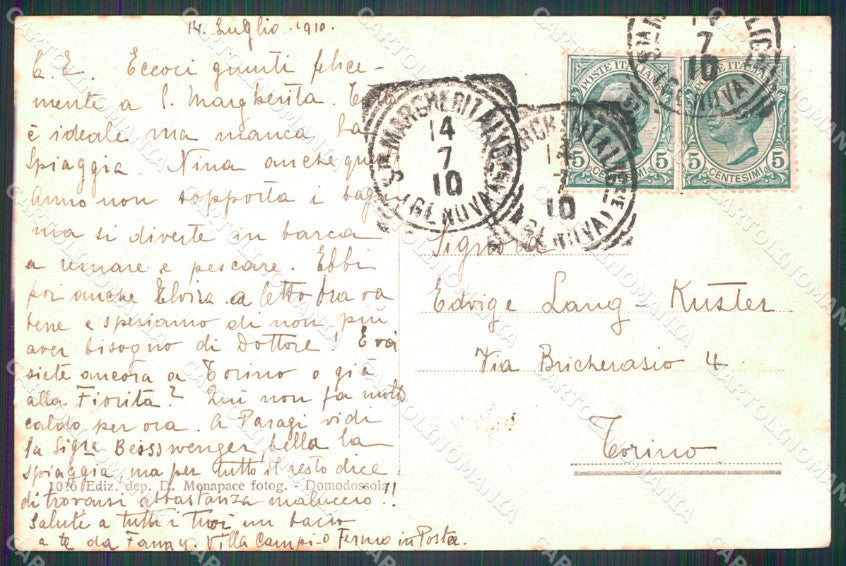 14 Luglio 1910.
C. E. Eccoci giunti felice-
mente a S. Margherita.
è ideale ma manca la
Spiaggia. Nina anche qu
Anno non sopporta i bag
ma si diverte in barca
a remare e pescare. Ebbi
poi anche Elvira a letto ora va
bene e speriamo di non più
aver bisogno di Dottore! E voi
siete ancora a Torino o già
alla Fiorita? Qui non fa molto
caldo per ora. A Paragi vidi
la Sigra Beisswenger, bella la
spiaggia ma per tutto il resto dice
di trovarsi abbastanza maluccio!!
Salute a tutti i tuoi un bacio
a te da Fanny. Villa Campi-o Fermo in Posta.
1016 Ediz. dep. D. Monapace fotog. - Domodossola
S.TA MARGHERITA LIGURE
14
7
10
(GENOVA)
MARGHERITA LIGURE
14
7
10
(GENOVA)
14
7
10
(GENOVA)
POSTE ITALIANE
5 5
CENTESIMI
POSTE ITALIANE
5 5
CENTESIMI
Signora
Edvige Lang-Kuster
Via Bricherasio 4
Torino
CARTOLINOMANIA